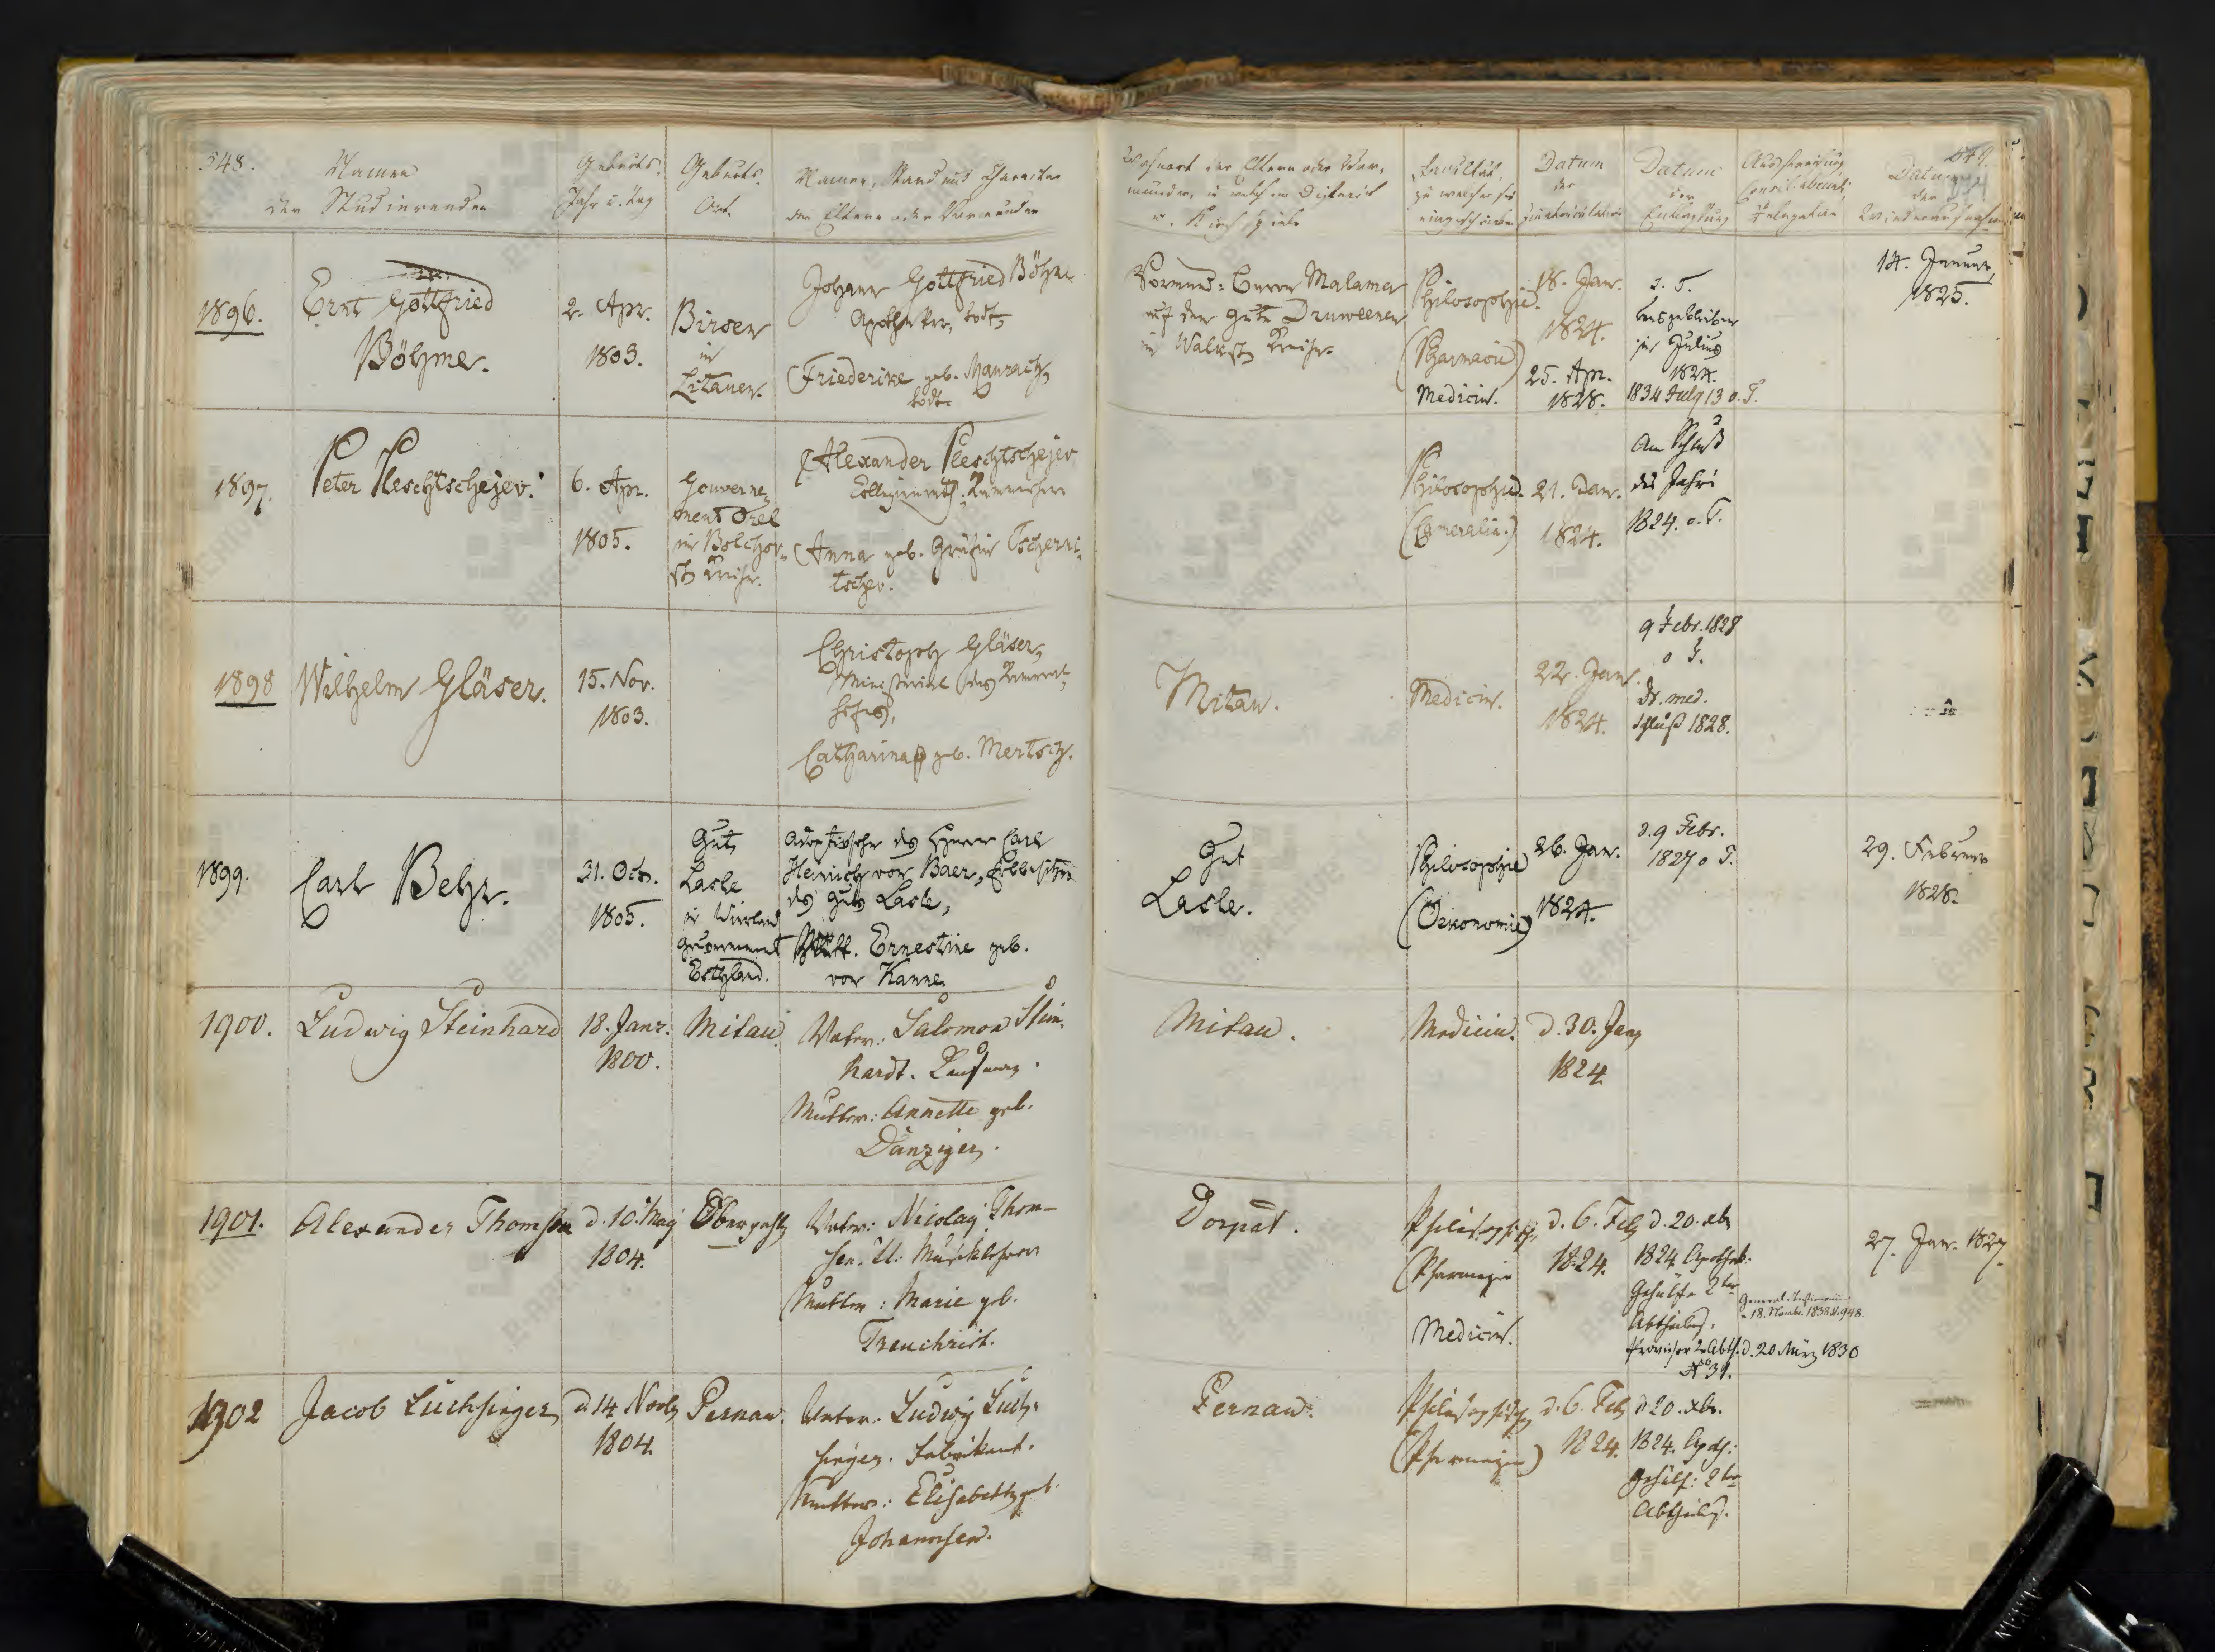 548.
Namen
der Studierenden
Geburts-
Jahr u. Tag
Geburts-
Ort.
Namen, Stand und Charakter
der Eltern oder Vormünder
Wohnort der Eltern oder Vor-
münder, in welchem District
u. Kirchspiele
Facultät,
zu welcher sie
eingeschrieben
Datum
der
Immatriculation
Datum
der
Entlassung
Consil. abeundi,
Relegation
549.
Datum
der
Wiederaufnahme
1896.
Ernt Gottfried
Böhme.
2. Apr.
1803.
Birsen
in
Litauen.
Johann Gottfried Böhme
Apotheker, todt,
Friederike geb. Maurach,
todt.
Vormund: Malama
auf dem Gute Druweenen
in Walksch. Kreise.
Philosophie.
(Pharmacie)
Medicin.
18. Jan.
1824.
25. Apr.
1828.
o. T.
ausgeblieben
im Julius
1824.
1834 July 13 o. T.
14. Januar
1825.
1897.
Peter Pleschtschejev.
6. Apr.
1805.
Gouverne-
ment Orel
im Bolchov-
sch. Kreise.
Alexander Pleschtschejev
Collegienrath,
Anna geb. Gräfin Tscherni-
tschev.
Philosophie.
(Cameralia.)
21. Jan.
1824.
Am Schluß
des Jahres
1824. o. T.
1898
Wilhelm Gläser.
15. Nov.
1803.
Christoph Gläser,
Ministerial des Kameral-
hofes,
Catharina geb. Mertsch.
Mitau.
Medicin.
22. Jan.
1824.
9 Febr. 1828
o T.
Dr. med.
Schluß 1828.
1899.
Carl Behr.
31. Oct.
1805.
Gut
Lasle
in Wierland
Gouvernement
Esthland.
Adoptivsohn des Herrn Carl
Heinrich von Baer, Erbbesitzer
des Guts Lasle,
Mutt. Ernestine geb.
von Kanne.
Gut
Lasle.
Philosophie
(Oekonomie)
26. Jan.
1824.
d. 9 Febr.
1827 o T.
29. Februar
1828.
1900.
Ludwig Steinhard
18. Janr.
1800.
Mitau
Vater: Salomon Stein-
hardt. Kaufmann.
Mutter: Annette geb.
Danziger.
Mitau.
Medicin.
d. 30. Jan.
1824
1901.
Alexander Thomson
d. 10. May
1804.
Oberpahlen
Vater: Nicolay Thom-
sen. Musiklehrer
Mutter: Marie geb.
Treuchrist.
Dorpat.
Philosophisch
(Pharmazie
Medicin.
d. 6. Feb.
1824.
d. 20. xbr.
1824. Apothek:
Gehülfe 2ter
Abtheilung.
Provisor 2r Abth. d. 20 März 1830
No 31.
General-Testimonium
18. Novbr. 1838 N. 948.
27. Jan. 1827.
1902
Jacob Luchsinger
d 14 Novb.
1804.
Pernau.
Vater: Ludwig Luch-
singer. Fabrikant.
Mutter: Elisabeth geb.
Johannsen.
Pernau.
Philosophisch
(Pharmazie)
d. 6. Feb.
1824.
d 20. xbr.
1824. Apoth:
Gehülf: 2ter
Abtheilung.